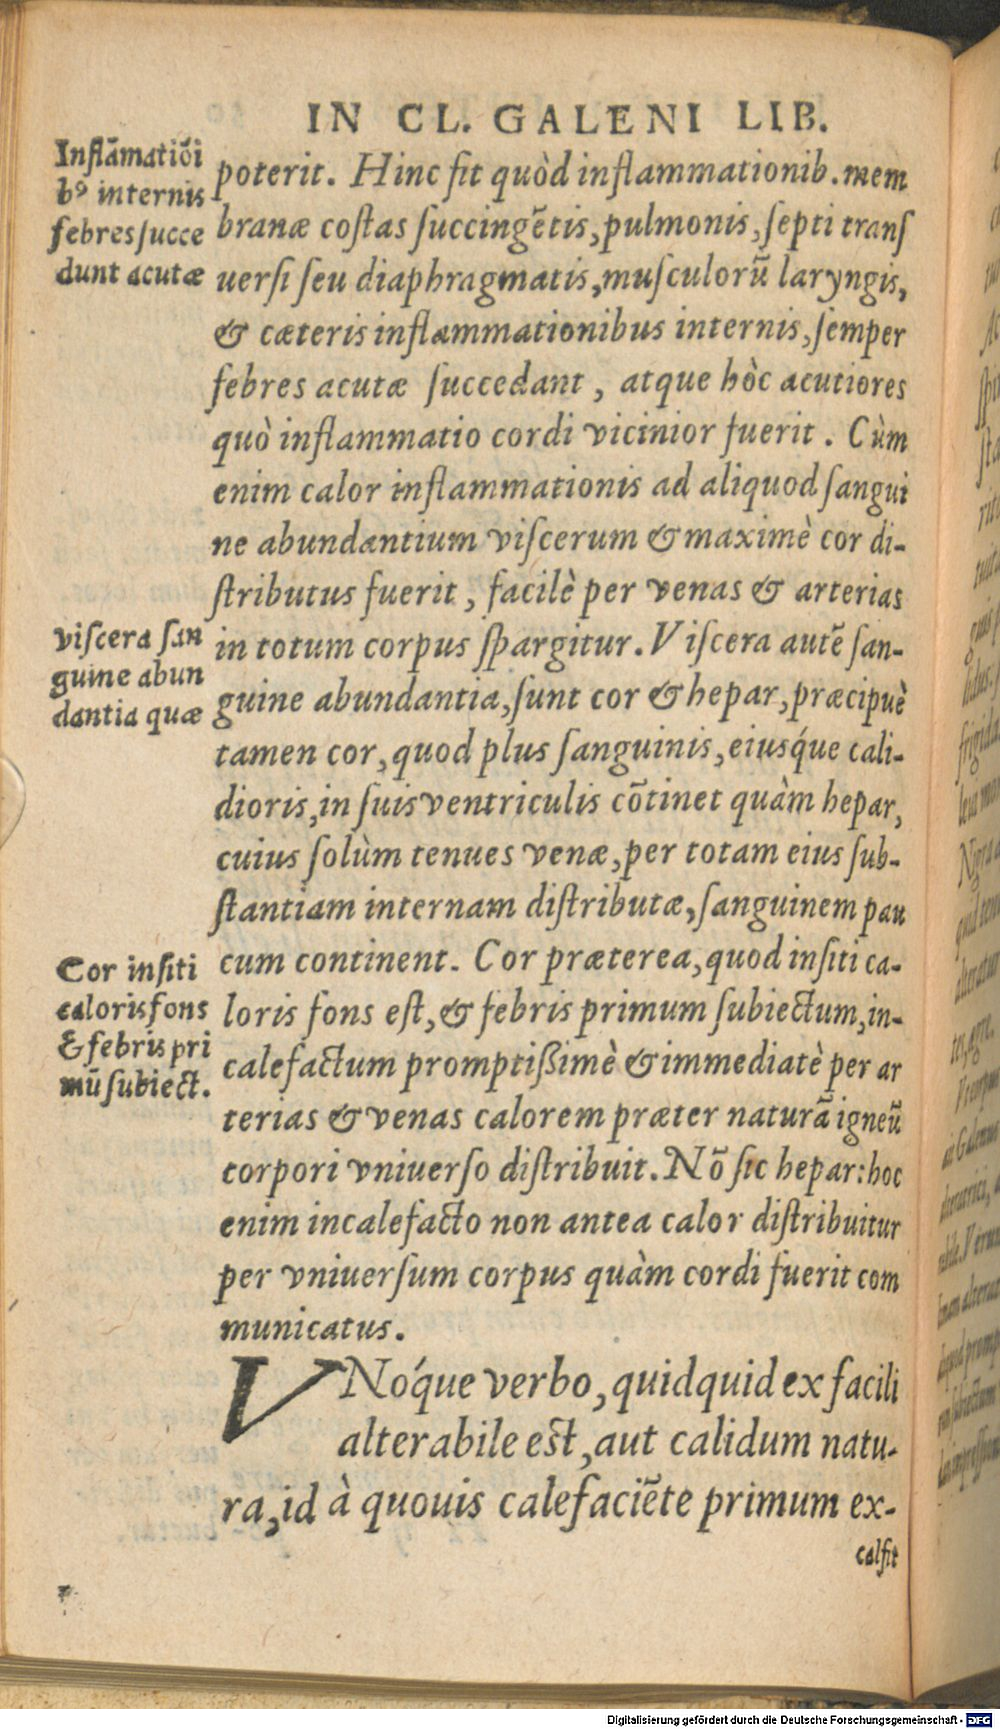 IN CL. GALENI LIB.
Inflāmatiōi
bꝰ internis
febres ſucce
dunt acutæ
poterit. Hinc fit quòd inflammationib. mem
branæ coſtas ſuccingētis, pulmonis, ſepti tranſ
uerſi ſeu diaphragmatis, muſculorū laryngis,
& cæteris inflammationibus internis, ſemper
febres acutæ ſuccedant, atque hòc acutiores
quò inflammatio cordi vicinior fuerit. Cùm
enim calor inflammationis ad aliquod ſangui
ne abundantium viſcerum & maximè cor di-
ſtributus fuerit, facilè per venas & arterias
viſcera ſan
guine abun
dantia quæ
in totum corpus ſpargitur. Viſcera autē ſan-
guine abundantia, ſunt cor & hepar, præcipuè
tamen cor, quod plus ſanguinis, eiusq́ue cali-
dioris, in ſuis ventriculis cōtinet quàm hepar,
cuius ſolùm tenues venæ, per totam eius ſub-
ſtantiam internam diſtributæ, ſanguinem pau
Cor inſiti
caloris fons
& febris pri
mū ſubiect.
cum continent. Cor præterea, quod inſiti ca-
loris fons eſt, & febris primum ſubiectum, in-
calefactum promptißimè & immediatè per ar
terias & venas calorem præter naturā igneū
corpori vniuerſo diſtribuit. Nō ſic hepar: hoc
enim incalefacto non antea calor diſtribuitur
per vniuerſum corpus quàm cordi fuerit com
municatus.
VNoq́ue verbo, quidquid ex facili
alterabile est, aut calidum natu-
ra, id à quouis calefaciēte primum ex-
calfit
Digitalisierung gefördert durch die Deutsche Forschungsgemeinschaft - DFG